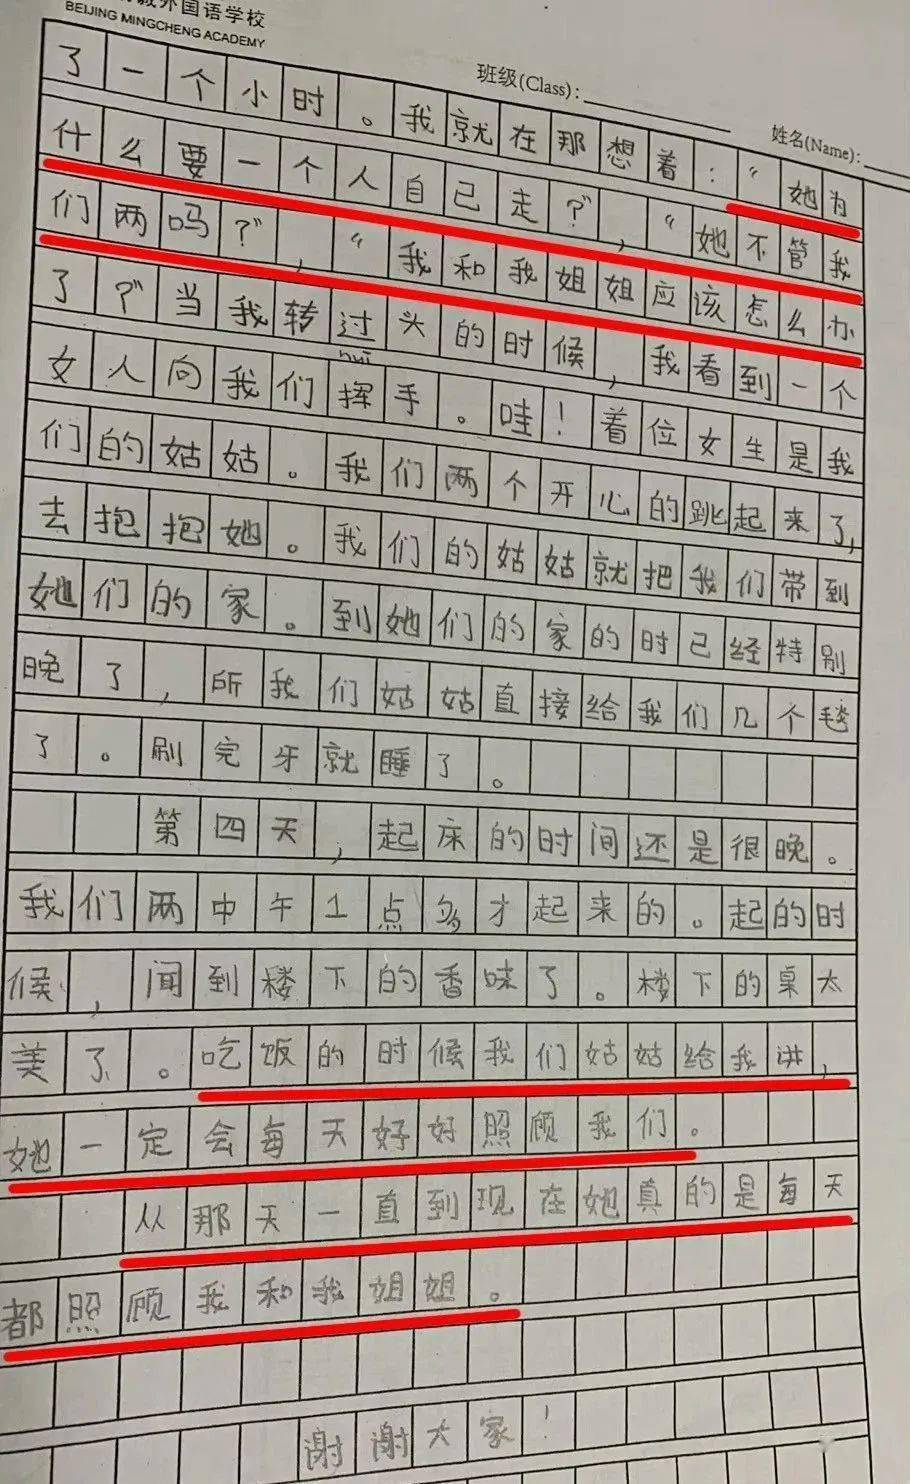 外国语学校
BEIJING MINGCHENG ACADEMY
班级(Class):
姓名(Name):
了一个小时。我就在那想着：“她为
什么要一个人自己走？”，“她不管我
们两吗？”，“我和我姐姐应该怎么办
了？”当我转过头的时候，我看到一个
女人向我们挥手。哇！着位女生是我
们的姑姑。我们两个开心的跳起来了，
去抱抱她。我们的姑姑就把我们带到
她们的家。到她们的家的时已经特别
晚了，所我们姑姑直接给我们几个毯
了。刷完牙就睡了。
第四天，起床的时间还是很晚。
我们两中午1点多才起来的。起的时
候，闻到楼下的香味了。楼下的桌太
美了。吃饭的时候我们姑姑给我讲，
她一定会每天好好照顾我们。
从那天一直到现在她真的是每天
都照顾我和我姐姐。
谢谢大家！